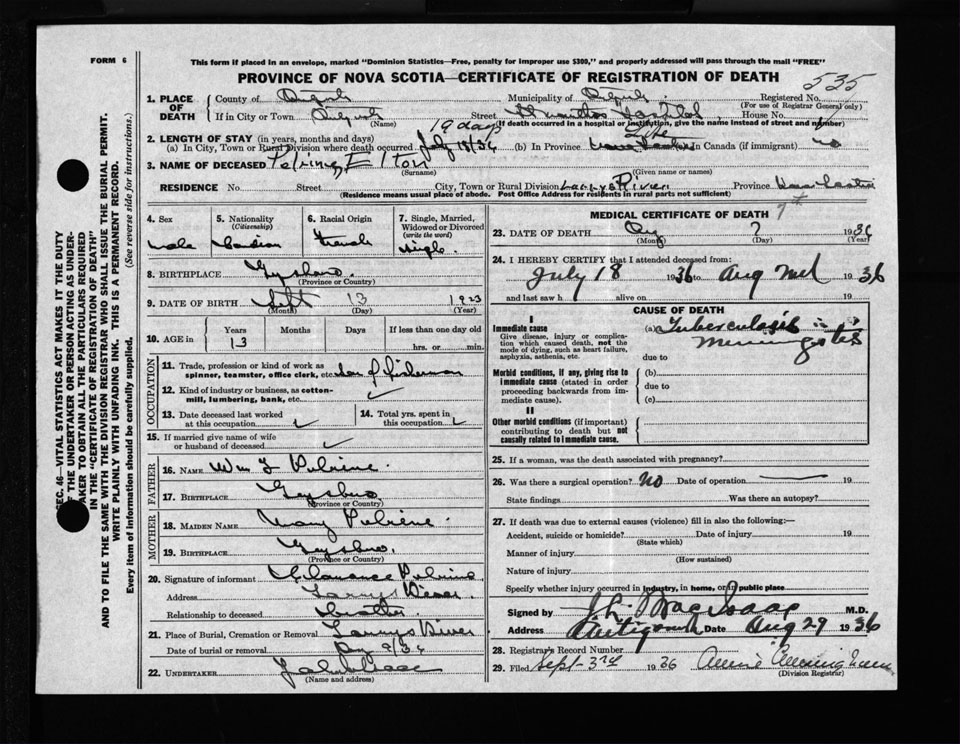 FORM 6
This form if placed in an envelope, marked "Dominion Statistics—Free, penalty for improper use $300," and properly addressed will pass through the mail "FREE"
PROVINCE OF NOVA SCOTIA—CERTIFICATE OF REGISTRATION OF DEATH
535
1. PLACE OF DEATH
County of
Municipality of
Registered No.
(For use of Registrar General only)
If in City or Town
(Name)
Street
House No.
(If death occurred in a hospital or institution, give the name instead of street and number)
2. LENGTH OF STAY (in years, months and days) 19 days
Life
(a) In City, Town or Rural Division where death occurred July 18/36 (b) In Province Nova Scotia in Canada (if immigrant) no
3. NAME OF DECEASED Elton
(Surname) (Given name or names)
RESIDENCE No. Street City, Town or Rural Division Larrys River Province Nova Scotia
(Residence means usual place of abode. Post Office Address for residents in rural parts not sufficient)
4. Sex
male
5. Nationality
(Citizenship)
6. Racial Origin
French
7. Single, Married, Widowed or Divorced
(write the word)
single
8. BIRTHPLACE Guysboro.
(Province or Country)
9. DATE OF BIRTH Sept 13 1923
(Month) (Day) (Year)
10. AGE in
Years
13
Months
Days
If less than one day old
hrs. or min.
OCCUPATION
11. Trade, profession or kind of work as spinner, teamster, office clerk, etc. fisherman
12. Kind of industry or business, as cotton-mill, lumbering, bank, etc.
13. Date deceased last worked at this occupation
14. Total yrs. spent in this occupation
15. If married give name of wife or husband of deceased
FATHER
16. NAME Wm
17. BIRTHPLACE Guysboro
(Province or Country)
MOTHER
18. MAIDEN NAME Mary
19. BIRTHPLACE Guysboro.
(Province or Country)
20. Signature of informant Clarance
Address Larrys River
Relationship to deceased brother
21. Place of Burial, Cremation or Removal Larrys River
Date of burial or removal 9/36
22. UNDERTAKER
(Name and address)
MEDICAL CERTIFICATE OF DEATH
7th
23. DATE OF DEATH 1936
(Month) (Day) (Year)
24. I HEREBY CERTIFY that I attended deceased from:
July 18 1936 to Aug 1936
and last saw h alive on 19
CAUSE OF DEATH
I
Immediate cause
Give disease, injury or complication which caused death, not the mode of dying, such as heart failure, asphyxia, asthenia, etc.
(a) Tuberculosis
due to
Morbid conditions, if any, giving rise to immediate cause (stated in order proceeding backwards from immediate cause).
(b)
due to
(c)
II
Other morbid conditions (if important) contributing to death but not causally related to immediate cause.
25. If a woman, was the death associated with pregnancy?
26. Was there a surgical operation? No Date of operation 19
State findings Was there an autopsy?
27. If death was due to external causes (violence) fill in also the following:—
Accident, suicide or homicide? Date of injury 19
(State which)
Manner of injury
(How sustained)
Nature of injury
Specify whether injury occurred in industry, in home, or in public place
Signed by J. L. MacIsaac M.D.
Address Antigonish Date Aug 29 1936
28. Registrar's Record Number
29. Filed Sept-3rd 1936 Annie
(Division Registrar)
SEC. 46—VITAL STATISTICS ACT MAKES IT THE DUTY
OF THE UNDERTAKER OR PERSON ACTING AS UNDERTAKER
TO OBTAIN ALL THE PARTICULARS REQUIRED
IN THE "CERTIFICATE OF REGISTRATION OF DEATH"
AND TO FILE THE SAME WITH THE DIVISION REGISTRAR WHO SHALL ISSUE THE BURIAL PERMIT.
WRITE PLAINLY WITH UNFADING INK. THIS IS A PERMANENT RECORD.
Every item of information should be carefully supplied. (See reverse side for instructions.)